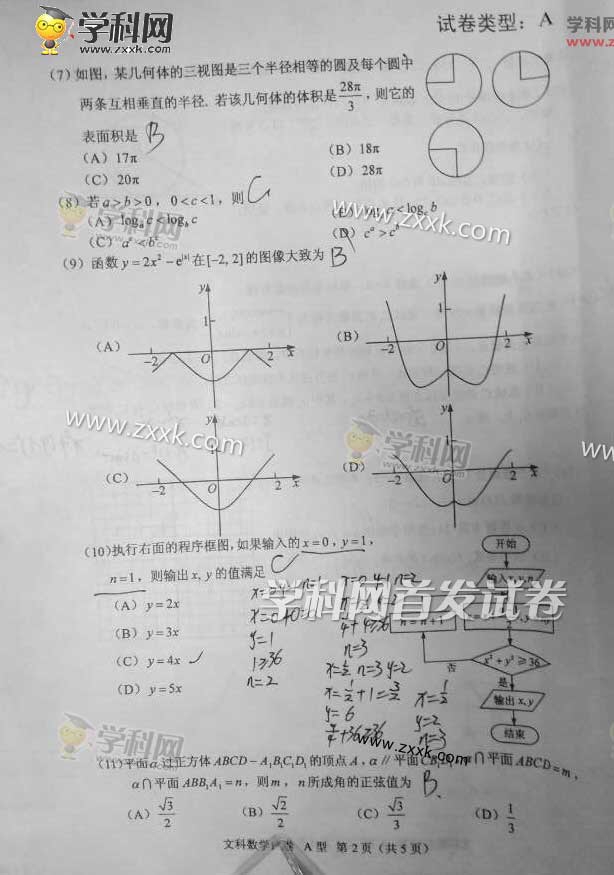 学科网
www.zxxk.com
试卷类型：A
学科网
www.zxxk.com
(7) 如图，某几何体的三视图是三个半径相等的圆及每个圆中
两条互相垂直的半径. 若该几何体的体积是 28π/3，则它的
表面积是 B
(A) 17π (B) 18π
(C) 20π (D) 28π
(8) 若 a>b>0，0<c<1，则 C
(A) logₐc<log_b c
(C) aᶜ<bᶜ (D) cᵃ>cᵇ
学科网
www.zxxk.com
www.zxxk.com
(9) 函数 y=2x²−e^|x| 在[−2, 2]的图像大致为 B
(A) y 1 −2 O 2 x
(B) y 1 −2 O 2 x
(C) y 1 −2 O 2 x
(D) y 1 −2 O 2 x
www.zxxk.com
学科网
www.zxxk.com
(10) 执行右面的程序框图，如果输入的 x=0，y=1，
n=1，则输出 x, y 的值满足 C
(A) y=2x
(B) y=3x
(C) y=4x ✓
(D) y=5x
y=1
n=2
n=3
x=½ n=3 y=2
x=½+1=3/2
y=6
x=½
y=2
n=3
开始
n=n+1
x²+y²≥36
否
是
输出 x, y
结束
学科网首发试卷
学科网
www.zxxk.com
www.zxxk.com
(11) 平面α过正方体 ABCD−A₁B₁C₁D₁ 的顶点 A，α // 平面 α∩平面 ABCD=m，
α∩平面 ABB₁A₁=n，则 m，n 所成角的正弦值为 B
(A) √3/2 (B) √2/2 (C) √3/3 (D) 1/3
文科数学试卷 A型 第2页（共5页）